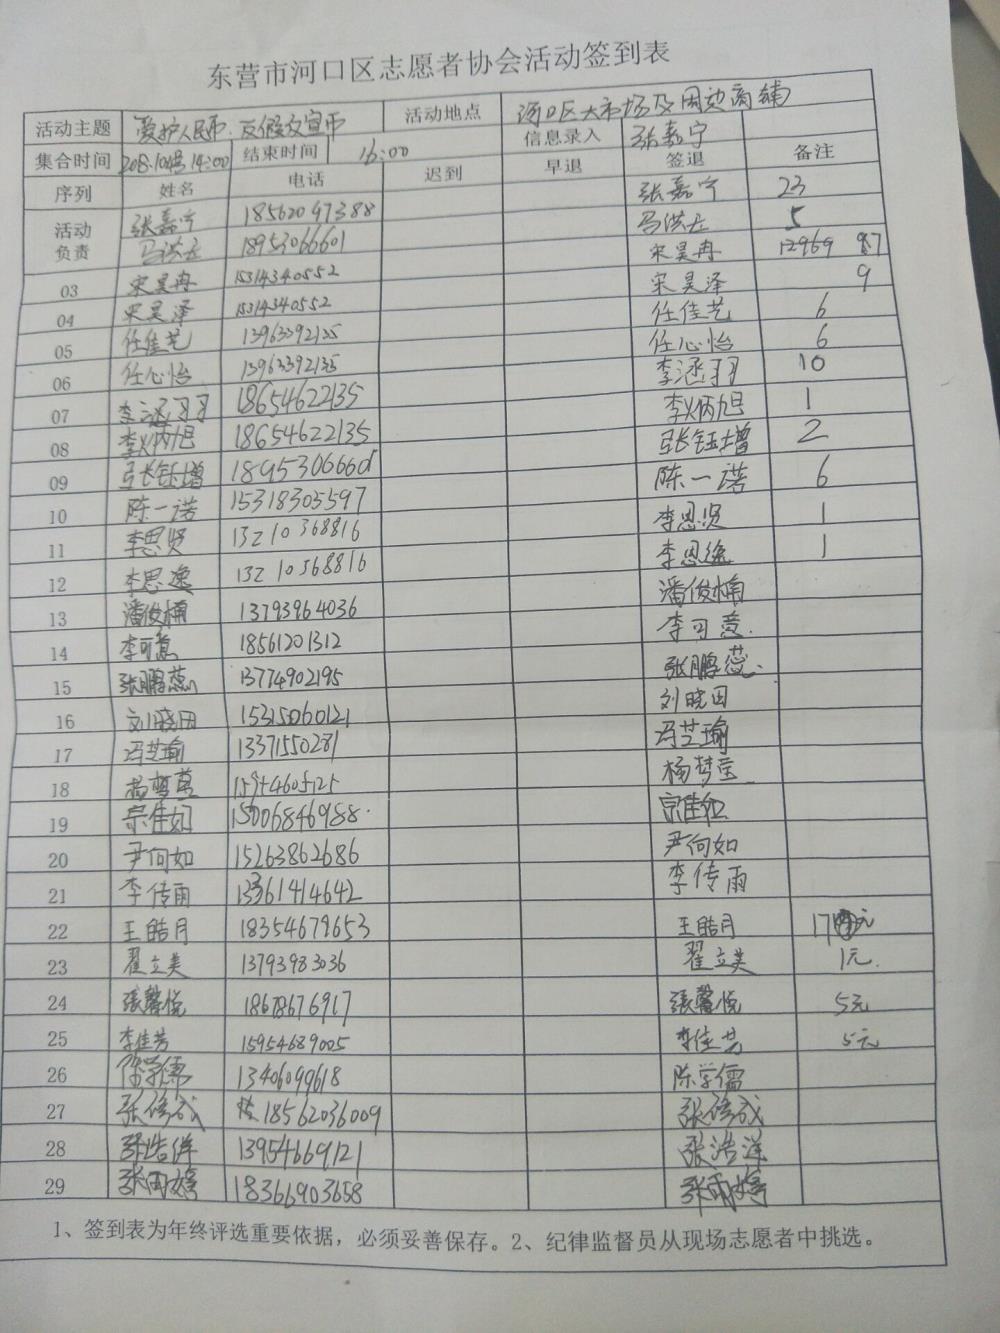 东营市河口区志愿者协会活动签到表
活动主题 爱护人民币 反假 宣 活动地点 河口区大市场及周边商铺
集合时间 14:00 结束时间 16:00 信息录入 张嘉宁
序列 姓名 电话 迟到 早退 签退 备注
活动负责 张嘉宁 18562047388 张嘉宁 23
马洪 18953066601 马洪 5
03 宋昊冉 15314340552 宋昊冉 12969
04 宋昊泽 15314340552 宋昊泽 9
05 任佳艺 13963392135 任佳艺 6
06 任心怡 13963392135 任心怡 6
07 李涵羽 18654622135 李涵羽 10
08 李炳旭 18654622135 李炳旭 1
09 张钰增 张钰增 2
10 陈一诺 15318305597 陈一诺 6
11 李思贤 13210368816 李思贤 1
12 李思逸 13210368816 李思逸 1
13 潘俊楠 13793964036 潘俊楠
14 李可意 18561201312 李可意
15 张鹏蕊 13774902195 张鹏蕊
16 刘晓田 15315060121 刘晓田
17 冯芝瑜 13371550281 冯芝瑜
18 杨梦莹 15954605125 杨梦莹
19 宗佳 15006846988 宗佳
20 尹向如 15263862686 尹向如
21 李传雨 13361414642 李传雨
22 王皓月 18354679653 王皓月
23 翟立美 13793983036 翟立美 1元
24 张馨悦 18678676917 张馨悦 5元
25 李佳芳 15954689005 李佳芳 5元
26 陈学儒 13406099618 陈学儒
27 张修成 18562036009 张修成
28 张浩洋 13954669121 张浩洋
29 张雨婷 18366903658 张雨婷
1、签到表为年终评选重要依据，必须妥善保存。2、纪律监督员从现场志愿者中挑选。